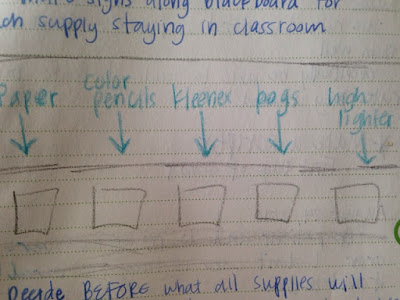 signs along blackboard for
supply staying in classroom
Paper
color
pencils
Kleenex
high
lighter
Decide BEFORE what all supplies will